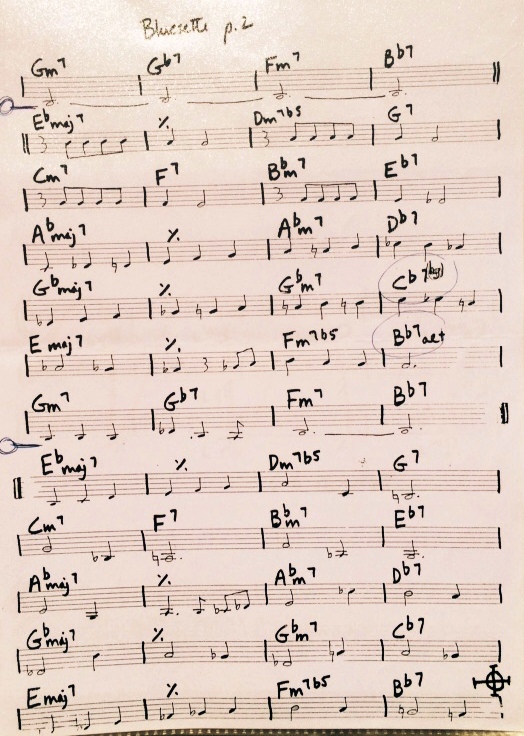 Bluesette p.2
Gm7 Gb7 Fm7 Bb7
Ebmaj7 ٪ Dm7b5 G7
Cm7 F7 Bbm7 Eb7
Abmaj7 ٪ Abm7 Db7
Gbmaj7 ٪ Gbm7 Cb7
Emaj7 ٪ Fm7b5 Bb7alt
Gm7 Gb7 Fm7 Bb7
Ebmaj7 ٪ Dm7b5 G7
Cm7 F7 Bbm7 Eb7
Abmaj7 ٪ Abm7 Db7
Gbmaj7 ٪ Gbm7 Cb7
Emaj7 ٪ Fm7b5 Bb7